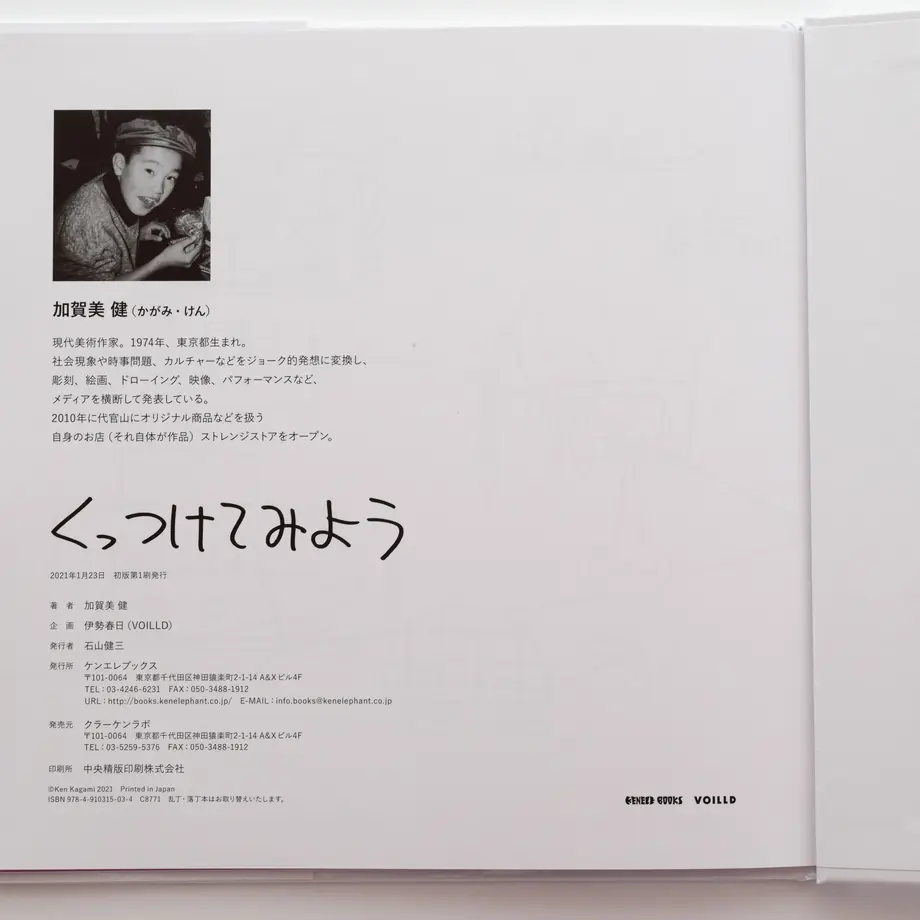 加賀美 健（かがみ・けん）
現代美術作家。1974年、東京都生まれ。
社会現象や時事問題、カルチャーなどをジョーク的発想に変換し、
彫刻、絵画、ドローイング、映像、パフォーマンスなど、
メディアを横断して発表している。
2010年に代官山にオリジナル商品などを扱う
自身のお店（それ自体が作品）ストレンジストアをオープン。
くっつけてみよう
2021年1月23日　初版第1刷発行
著　者　加賀美 健
企　画　伊勢春日（VOILLD）
発行者　石山健三
発行所　ケンエレブックス
〒101-0064　東京都千代田区神田猿楽町2-1-14 A&Xビル4F
TEL：03-4246-6231　FAX：050-3488-1912
URL：http://books.kenelephant.co.jp/　E-MAIL：info.books@kenelephant.co.jp
発売元　クラーケンラボ
〒101-0064　東京都千代田区神田猿楽町2-1-14 A&Xビル4F
TEL：03-5259-5376　FAX：050-3488-1912
印刷所　中央精版印刷株式会社
©Ken Kagami 2021　Printed in Japan
ISBN 978-4-910315-03-4　C8771　乱丁・落丁本はお取り替えいたします。
KENELE BOOKS　VOILLD